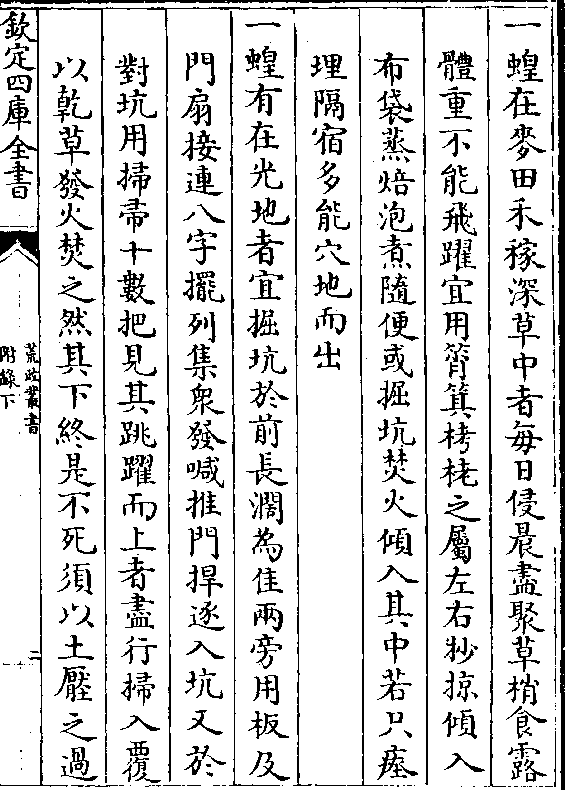 一蝗在麥田禾稼深草中者每日侵晨盡聚草梢食露
體重不能飛躍宜用筲箕栲栳之屬左右抄掠傾入
布袋蒸焙泡煮隨便或掘坑焚火傾入其中若只瘞
埋隔宿多能穴地而出
一蝗有在光地者宜掘坑於前長濶為佳兩旁用板及
門扇接連八字擺列集衆發喊推門捍逐入坑又於
對坑用掃帚十數把見其跳躍而上者盡行掃入覆
以乾草發火焚之然其下終是不死須以土壓之過
欽定四庫全書
荒政叢書
附錄下
二